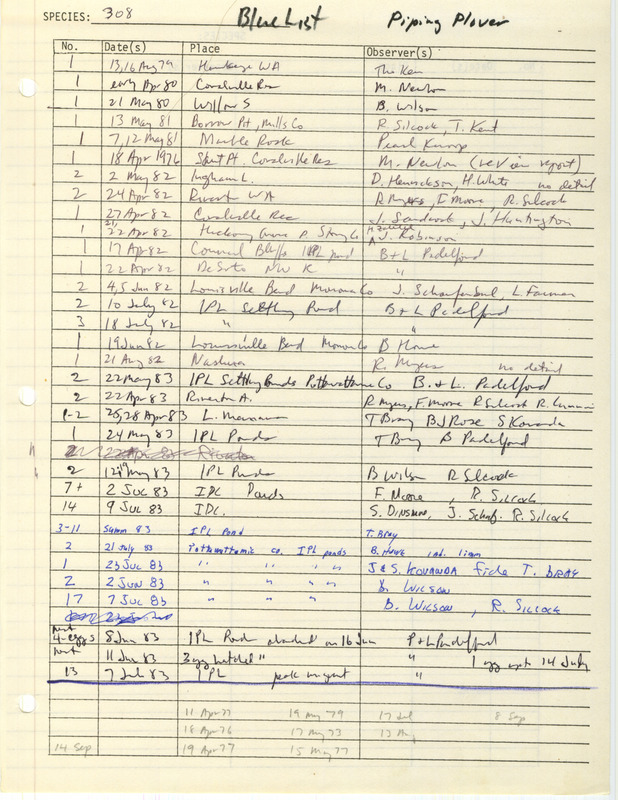 SPECIES: 308 Blue List Piping Plover
No. Date(s) Place Observer(s)
1 13,16 Aug 79 Hawkeye WA
1 early Apr 80 Coralville Res M. Newlon
1 21 May 80 Willow S B. Wilson
1 13 May 81 Borrow Pit, Mills Co R. Silcock, T. Kent
1 7,12 May 81 Marble Rock Pearl Knoop
1 18 Apr 1976 Coralville Res M. Newlon (review report)
2 2 May 82 Ingham L. D. Henrickson, H. White no detail
2 24 Apr 82 Riverton WA R Myers, F Moore, R. Silcock
1 27 Apr 82 Coralville Res J. Sandrock, J. Huntington
1 21, 22 Apr 82 Hickory Grove P Story Co J. Robinson
1 17 Apr 82 Council Bluffs IPL pond B+L Padelford
1 22 Apr 82 DeSoto NWR "
2 4,5 Jun 82 Louisville Bend Monona Co J. Schaufenbuel, L. Farmer
2 10 July 82 IPL Settling Pond B+L Padelford
3 18 July 82 " "
1 19 Jun 82 Louisville Bend Monona Co B Howe
1 21 Aug 82 Nashua R. Myers no detail
2 22 May 83 IPL Settling Ponds Pottawattamie Co B. + L. Padelford
2 22 Apr 83 Riverton A. R Myers, F. Moore R Silcock R. Cummins
1-2 25,28 Apr 83 L. Manawa T Bray BJ Rose S Kovanda
1 24 May 83 IPL Ponds T Bray B Padelford
2 22 Apr 83 Riverton
2 May 83 IPL Ponds B Wilson R Silcock
7+ 2 Jul 83 IPL Ponds F. Moore, R. Silcock
14 9 Jul 83 IPL S. Dinsmore, J. Schauf. R. Silcock
3-11 Summ 83 IPL Pond T. Bray
2 21 July 83 Pottawattamie co. IPL ponds B. Howe
1 23 Jul 83 " " " " J & S. Kovanda fide T. Bray
2 2 Jun 83 " " " " B. Wilson
17 7 Jul 83 " " " " B. Wilson, R. Silcock
nest 4-eggs 8 Jun 83 IPL Pond abandoned on 16 Jun B+L Padelford
nest 11 Jun 83 3 egg hatched " " 1 egg 14 July
13 7 Jul 83 IPL peak migrant "
11 Apr 77 19 May 79 17 Jul 8 Sep
18 Apr 76 17 May 73 13 Aug
14 Sep 19 Apr 77 15 May 77